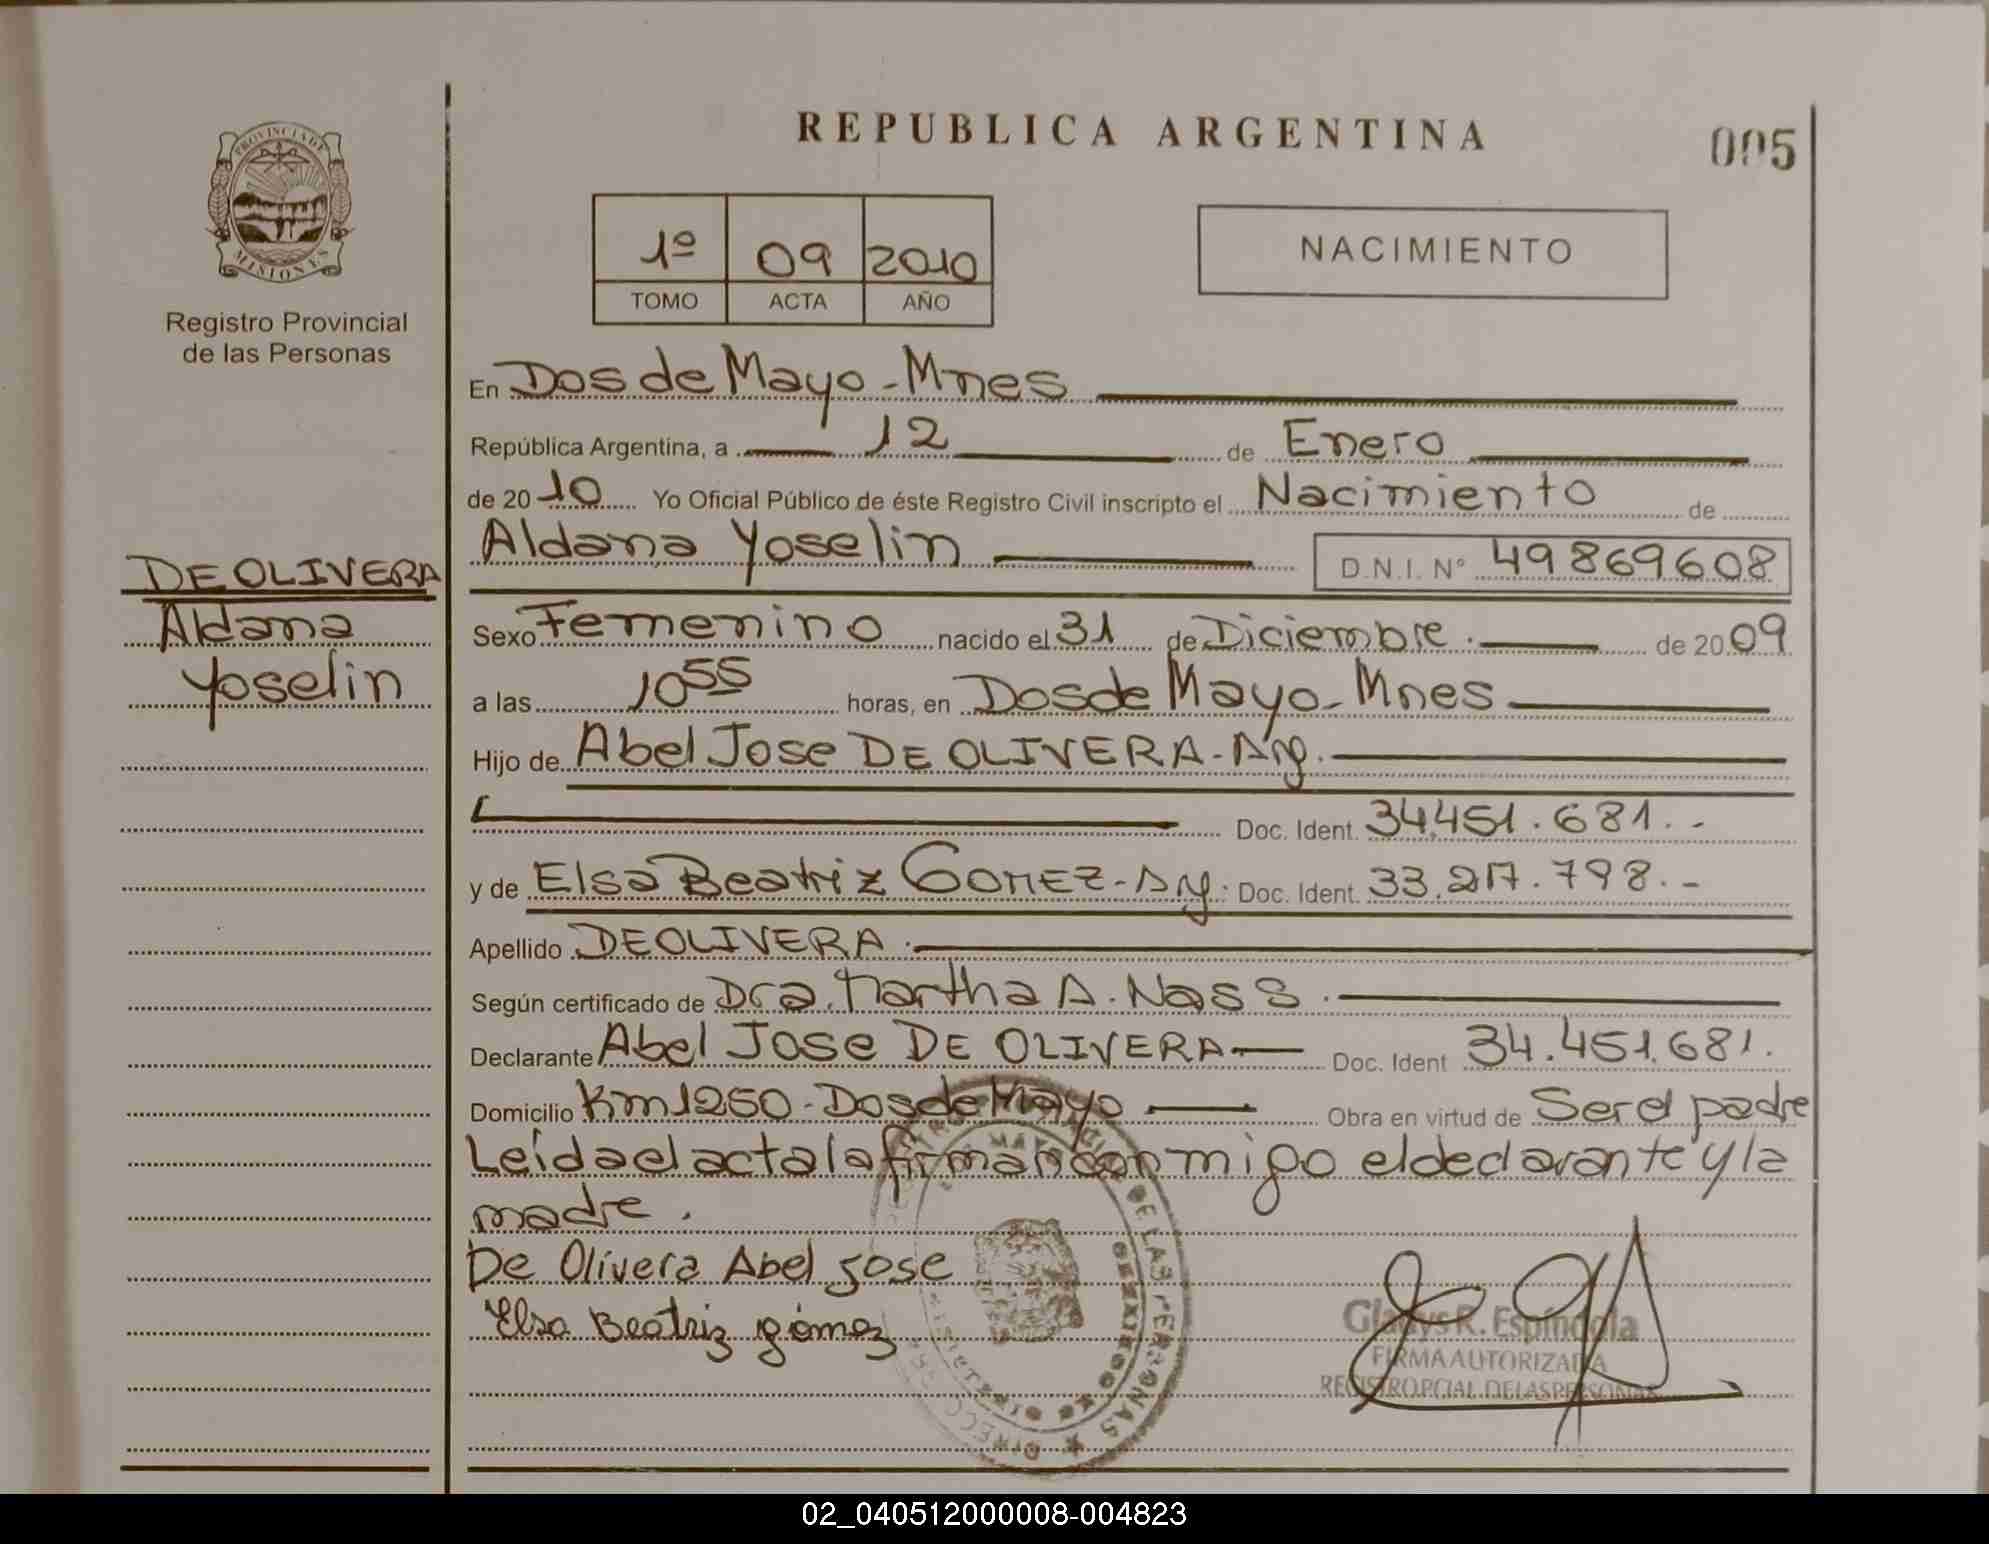 REPUBLICA ARGENTINA
005
PROVINCIA DE
MISIONES
Registro Provincial
de las Personas
1º 09 2010
TOMO ACTA AÑO
NACIMIENTO
En Dos de Mayo - Mnes
República Argentina, a 12 de Enero
de 2010 Yo Oficial Público de éste Registro Civil inscripto el Nacimiento de
Aldana Yoselin D.N.I. Nº 49869608
DE OLIVERA
Aldana
Yoselin
Sexo Femenino nacido el 31 de Diciembre. de 2009
a las 10 55 horas, en Dos de Mayo - Mnes
Hijo de Abel Jose DE OLIVERA - Arg.
Doc. Ident. 34.451.681.-
y de Elsa Beatriz GOMEZ - Arg. Doc. Ident. 33.217.798.-
Apellido DE OLIVERA.
Según certificado de Dra. Martha A. Nass.
Declarante Abel Jose DE OLIVERA Doc. Ident 34.451.681.
Domicilio Km 1250 - Dos de Mayo Obra en virtud de Ser el padre
Leída el acta la firman conmigo el declarante y la
madre.
De Olivera Abel Jose
Elsa Beatriz gómez
Gladys R. Espíndola
FIRMA AUTORIZADA
REGISTRO PCIAL. DE LAS PERSONAS
DE LAS PERSONAS
02_040512000008-004823